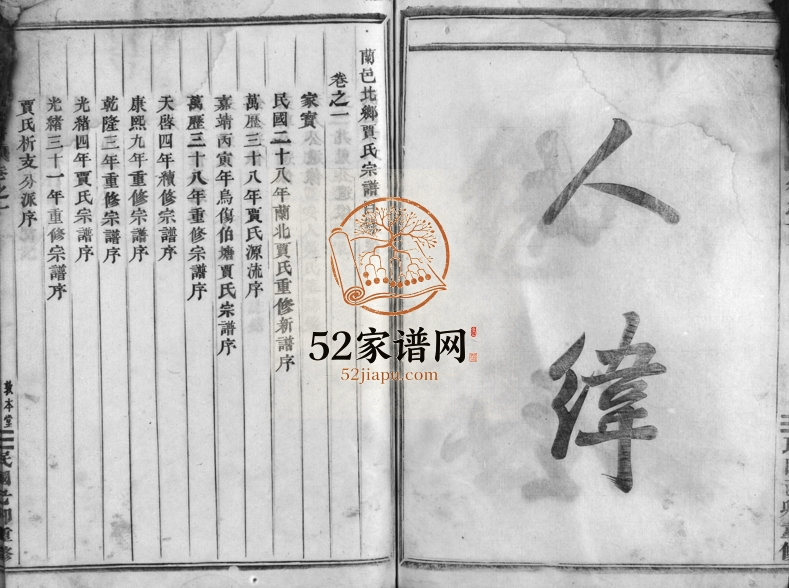 人緯
蘭邑北鄉賈氏宗譜目錄
卷之一
家寶
民國二十八年蘭北賈氏重修新譜序
萬歷三十八年賈氏源流序
嘉靖丙寅年烏傷伯塘賈氏宗譜序
萬歷三十八年重修宗譜序
天啓四年續修宗譜序
康熙九年重修宗譜序
乾隆三年重修宗譜序
光緒四年賈氏宗譜序
光緒三十一年重修宗譜序
賈氏析支分派序
卷之一
敦本堂
民國己卯重修
52家谱网
52jiapu.com